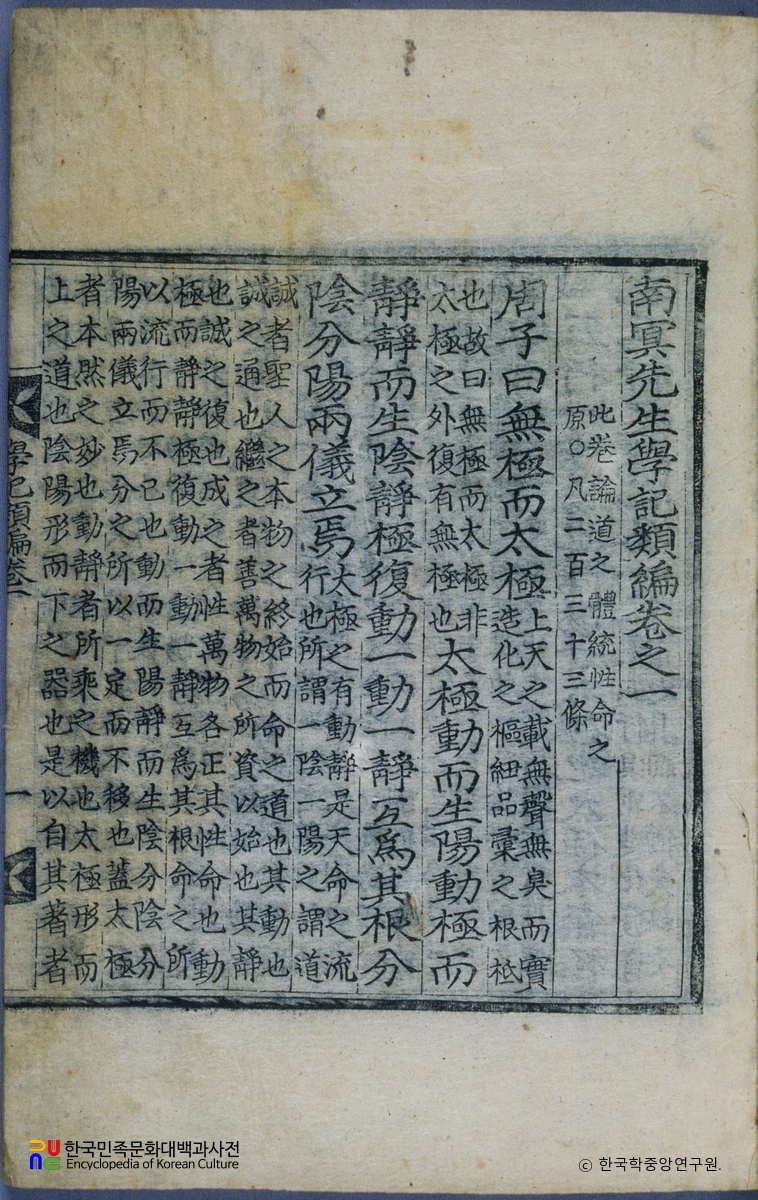 南冥先生學記類編卷之一
此卷論道之體統性命之
原○凡二百三十三條
周子曰無極而太極上天之載無聲無臭而實
造化之樞紐品彙之根柢
也故曰無極而太極非
太極之外復有無極也太極動而生陽動極而
靜靜而生陰靜極復動一動一靜互爲其根分
陰分陽兩儀立焉太極之有動靜是天命之流
行也所謂一陰一陽之謂道
誠者聖人之本物之終始而命之道也其動也
誠之通也繼之者善萬物之所資以始也其靜
也誠之復也成之者性萬物各正其性命也動
極而靜靜極復動一動一靜互爲其根命之所
以流行而不已也動而生陽靜而生陰分陰分
陽兩儀立焉分之所以一定而不移也蓋太極
者本然之妙也動靜者所乘之機也太極形而
上之道也陰陽形而下之器也是以自其著者
學記類編卷一
一
한국민족문화대백과사전
Encyclopedia of Korean Culture
ⓒ 한국학중앙연구원.